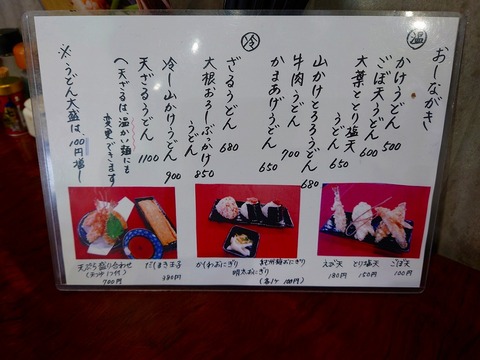 おしながき
温
かけうどん 500
ごぼ天うどん 600
大葉ととり塩天
うどん 650
山かけとろろうどん 680
牛肉うどん 700
かまあげうどん 650
冷
ざるうどん 680
大根おろしぶっかけ
うどん 850
冷し山かけうどん 900
天ざるうどん 1100
へ天ざるは、温かい麺にも
変更できます
※うどん大盛は、100円増し
天ぷら盛り合わせ
700円
だしまき玉子
380円
かしわおにぎり
明太おにぎり
(各1ヶ 100円)
えび天
180円
とり塩天
150円
ごぼ天
100円